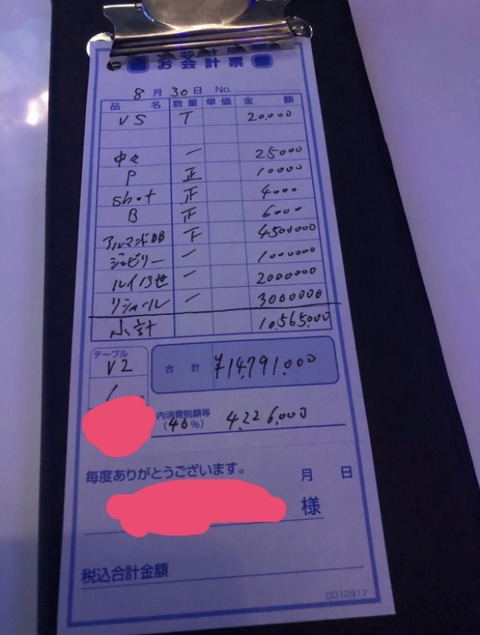 お会計票
8月30日 No.
品名 数量 単価 金額
VS T 20.000
中々 一 25000
P 正 10000
shot 正 4000
B 正 6000
アルマンド 下 4500000
ジュビリー 一 1000000
ルイ13世 一 2000000
リシャール 一 3000000
小計 10,565,000
テーブル
V2
合計 ¥14,791,000
内消費税額等
(40%) 4,226,000
毎度ありがとうございます。 月 日
様
税込合計金額
0012917